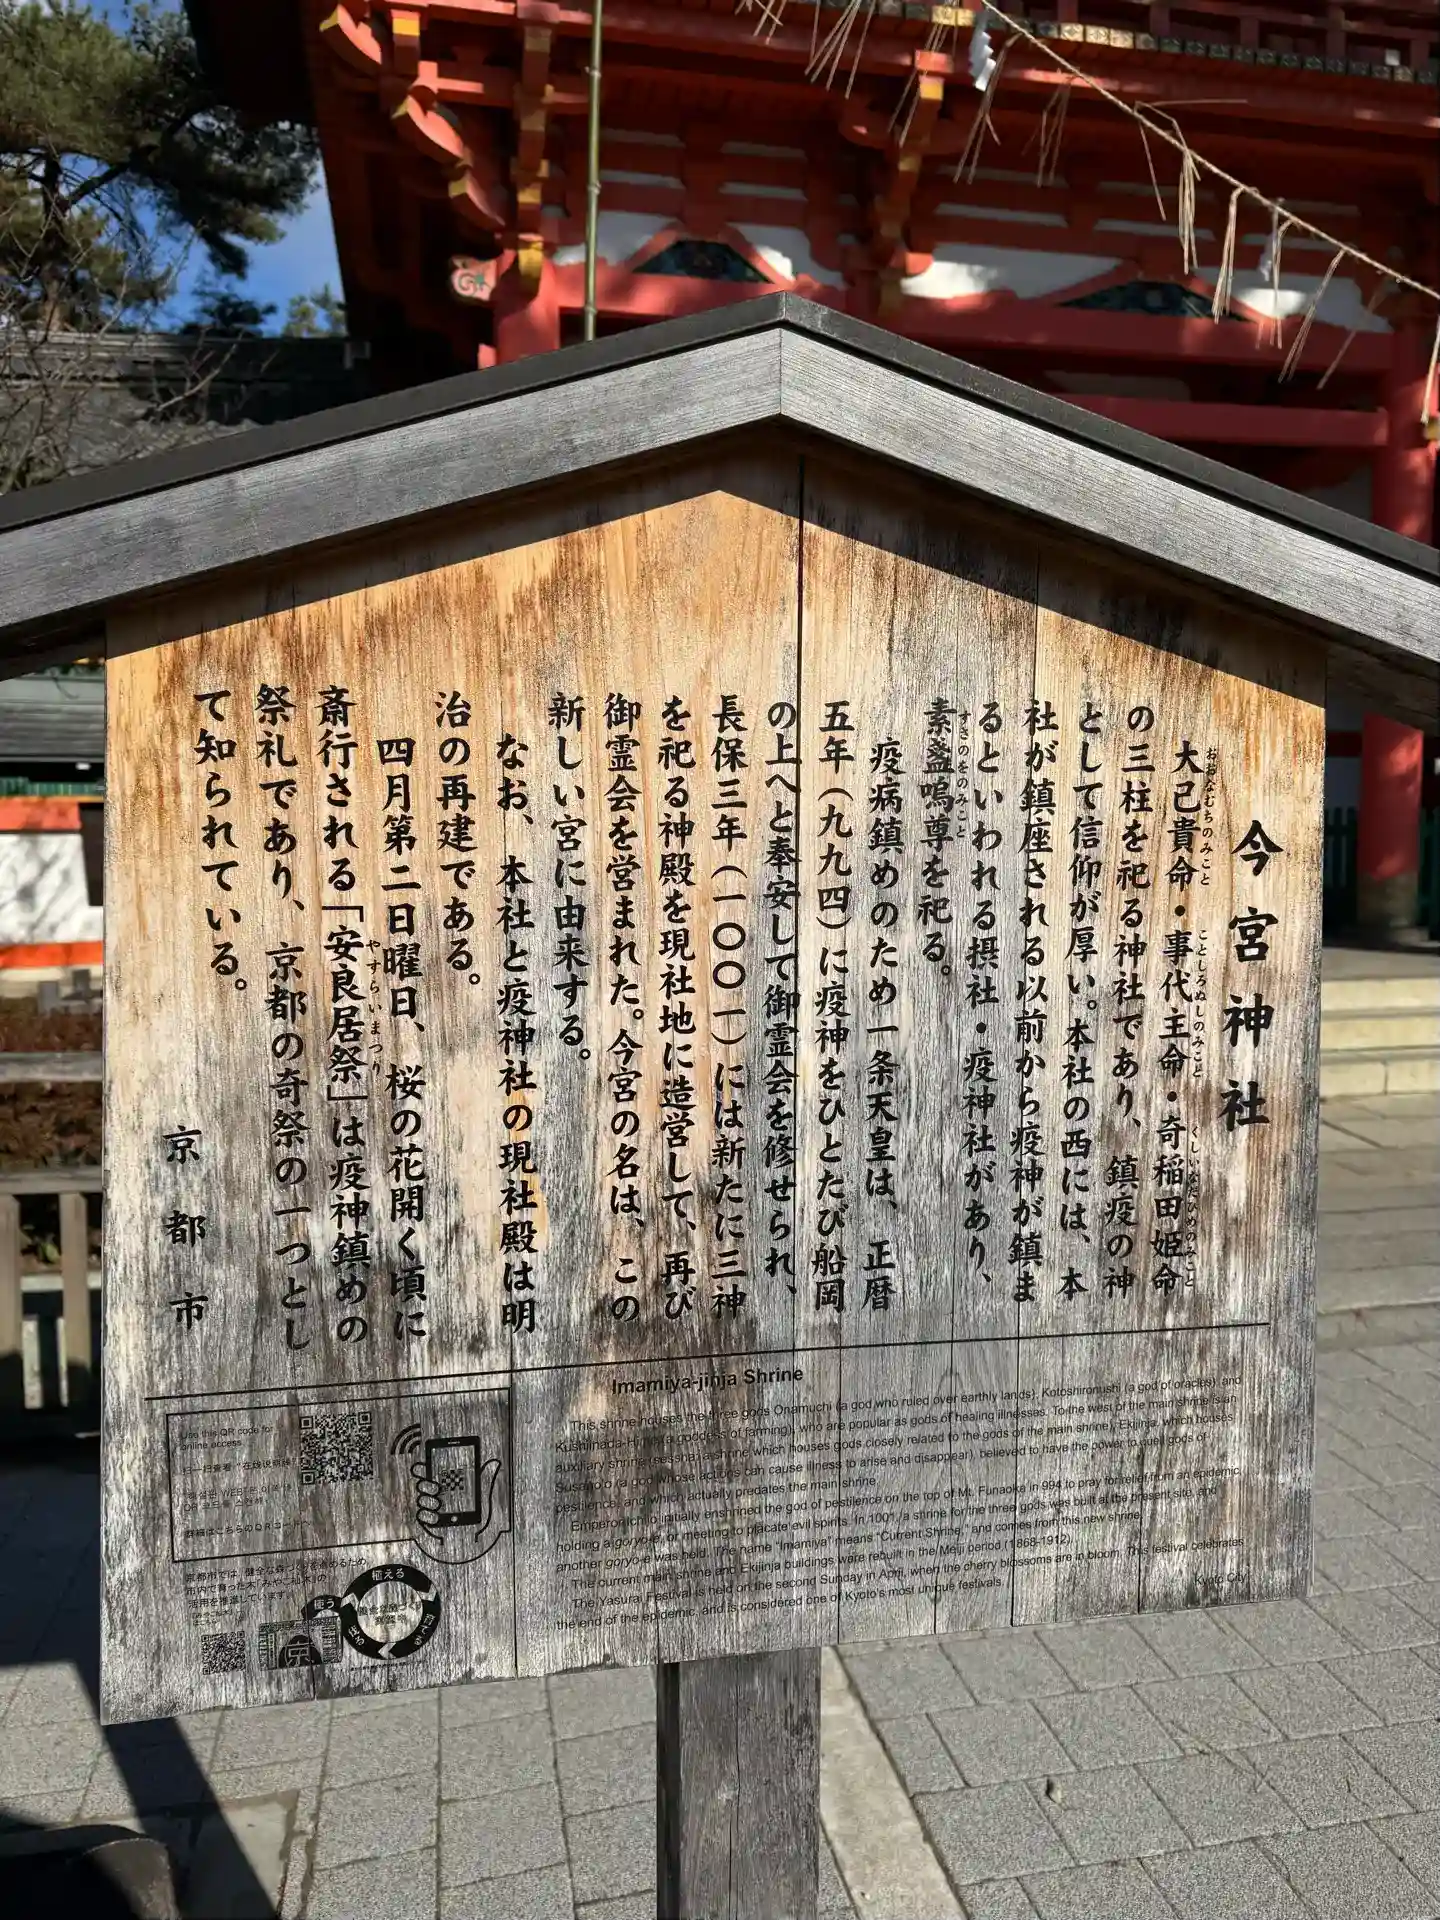 今宮神社
大己貴命・事代主命・奇稲田姫命
おおなむちのみこと ことしろぬしのみこと くしいなだひめのみこと
の三柱を祀る神社であり、鎮疫の神
として信仰が厚い。本社の西には、本
社が鎮座される以前から疫神が鎮ま
るといわれる摂社・疫神社があり、
素盞嗚尊を祀る。
すさのをのみこと
疫病鎮めのため一条天皇は、正暦
五年(九九四)に疫神をひとたび船岡
の上へと奉安して御霊会を修せられ、
長保三年(一〇〇一)には新たに三神
を祀る神殿を現社地に造営して、再び
御霊会を営まれた。今宮の名は、この
新しい宮に由来する。
なお、本社と疫神社の現社殿は明
治の再建である。
四月第二日曜日、桜の花開く頃に
斎行される「安良居祭」は疫神鎮めの
やすらいまつり
祭礼であり、京都の奇祭の一つとし
て知られている。
京都市
Imamiya-jinja Shrine
This shrine houses the three gods Onamuchi (a god who ruled over earthly lands), Kotoshironushi (a god of oracles), and
Kushiinada-Hime (a goddess of farming), who are popular as gods of healing illnesses. To the west of the main shrine is an
auxiliary shrine (sessha, a shrine which houses gods closely related to the gods of the main shrine), Ekijinja, which houses
Susano'o (a god whose actions can cause illness to arise and disappear), believed to have the power to quell gods of
pestilence, and which actually predates the main shrine.
Emperor Ichijo initially enshrined the god of pestilence on the top of Mt. Funaoka in 994 to pray for relief from an epidemic,
holding a goryo-e, or meeting to placate evil spirits. In 1001, a shrine for the three gods was built at the present site, and
another goryo-e was held. The name "Imamiya" means "Current Shrine," and comes from this new shrine.
The current main shrine and Ekijinja buildings were rebuilt in the Meiji period (1868-1912).
The Yasurai Festival is held on the second Sunday in April, when the cherry blossoms are in bloom. This festival celebrates
the end of the epidemic, and is considered one of Kyoto's most unique festivals.
Kyoto City
Use this QR code for
online access.
扫一扫查看“在线说明牌”
詳細はこちらのQRコードへ
京都市では、健全な森づくりを進めるため、
市内で育った木「みやこ杣木」の
活用を推進しています。
植える
育てる
使う